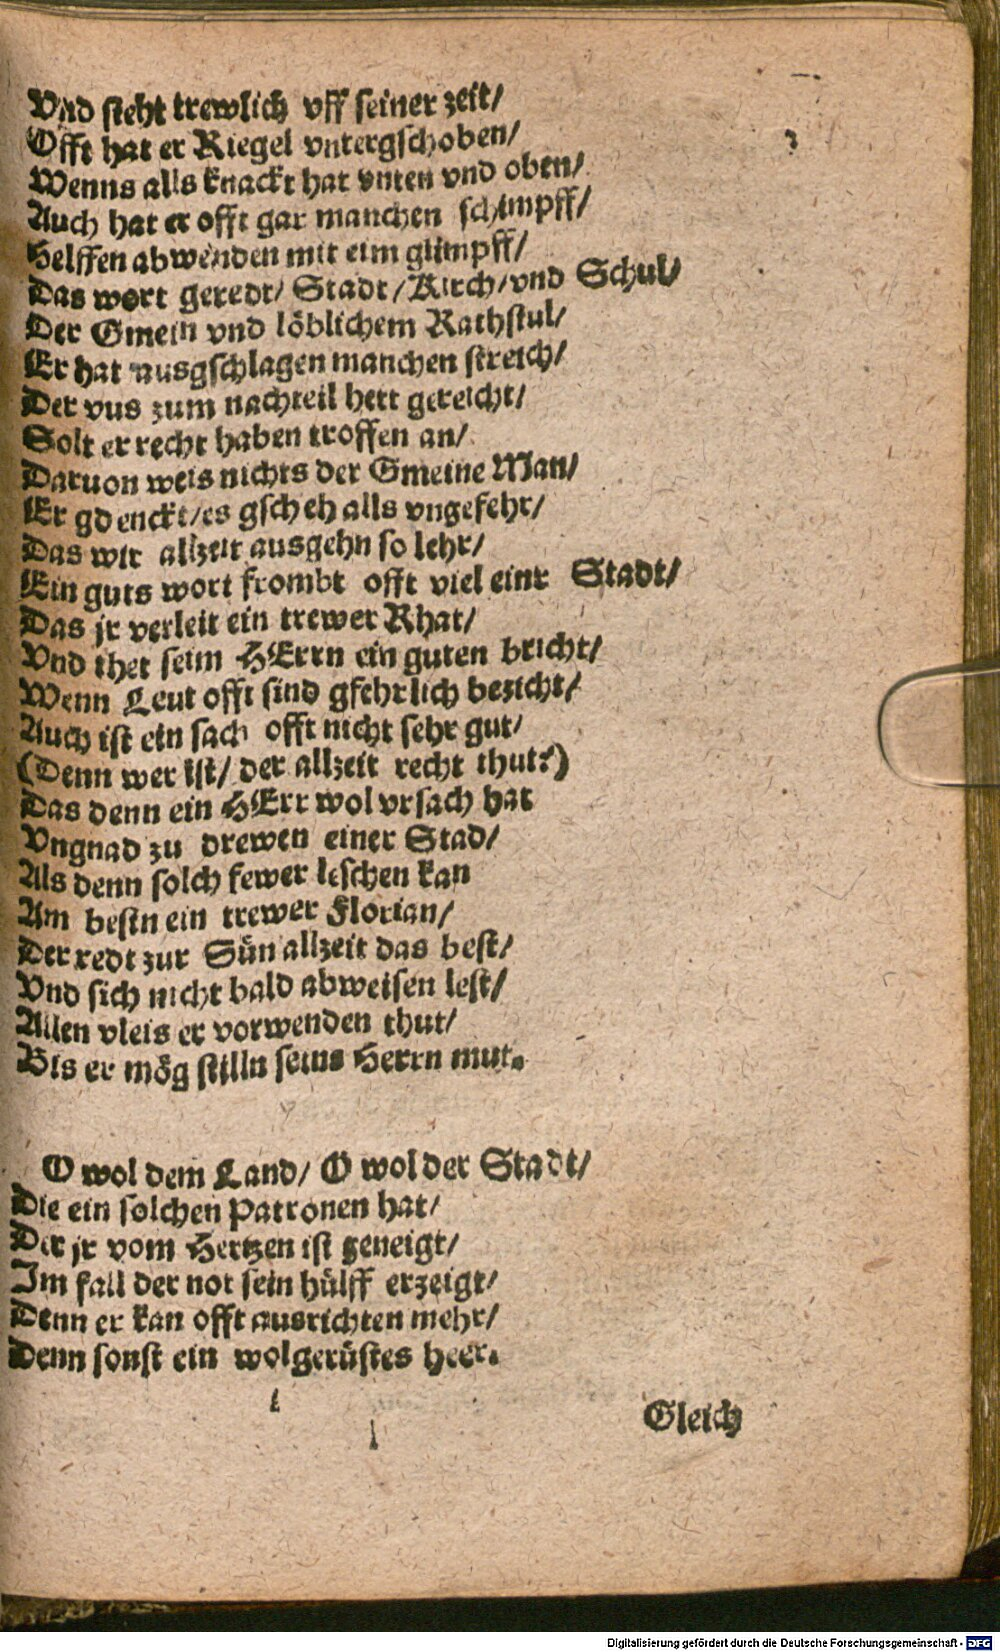 Vnd steht trewlich vff seiner zeit/
Offt hat er Riegel vntergschoben/
Wenns alls knackt hat vnten vnd oben/
Auch hat er offt gar manchen schimpff/
Helffen abwenden mit eim glimpff/
Das wort geredt/ Stadt/ Kirch/ vnd Schul/
Der Gmein vnd löblichem Rathstul/
Er hat ausgschlagen manchen streich/
Der vns zum nachteil hett gereicht/
Solt er recht haben troffen an/
Daruon weis nichts der Gmeine Man/
Er gdenckt/ es gscheh alls vngefehr/
Das wir allzeit ausgehn so lehr/
Ein guts wort frombt offt viel einr Stadt/
Das jr verleit ein trewer Rhat/
Vnd thet seim HErrn ein guten bricht/
Wenn Leut offt sind gfehrlich bezicht/
Auch ist ein sach offt nicht sehr gut/
(Denn wer ist/ der allzeit recht thut?)
Das denn ein HErr wol vrsach hat
Vngnad zu drewen einer Stad/
Als denn solch fewer leschen kan
Am bestn ein trewer Florian/
Der redt zur Sün allzeit das best/
Vnd sich nicht bald abweisen lest/
Allen vleis er vorwenden thut/
Bis er mög stilln seins Herrn mut.
O wol dem Land/ O wol der Stadt/
Die ein solchen Patronen hat/
Der jr vom Hertzen ist geneigt/
Im fall der not sein hülff erzeigt/
Denn er kan offt ausrichten mehr/
Denn sonst ein wolgerüstes Heer.
Gleich
Digitalisierung gefördert durch die Deutsche Forschungsgemeinschaft - DFG